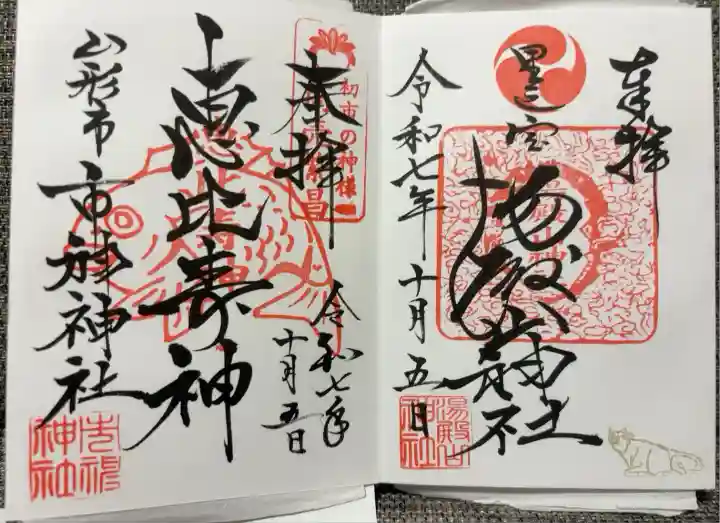 奉拝
里之宮
湯殿山神社
令和七年十月五日
湯殿山
神社
奉拝
初市の神様
商売繁昌
恵比寿神
令和七年
十月五日
山形市
市神神社
市神
神社